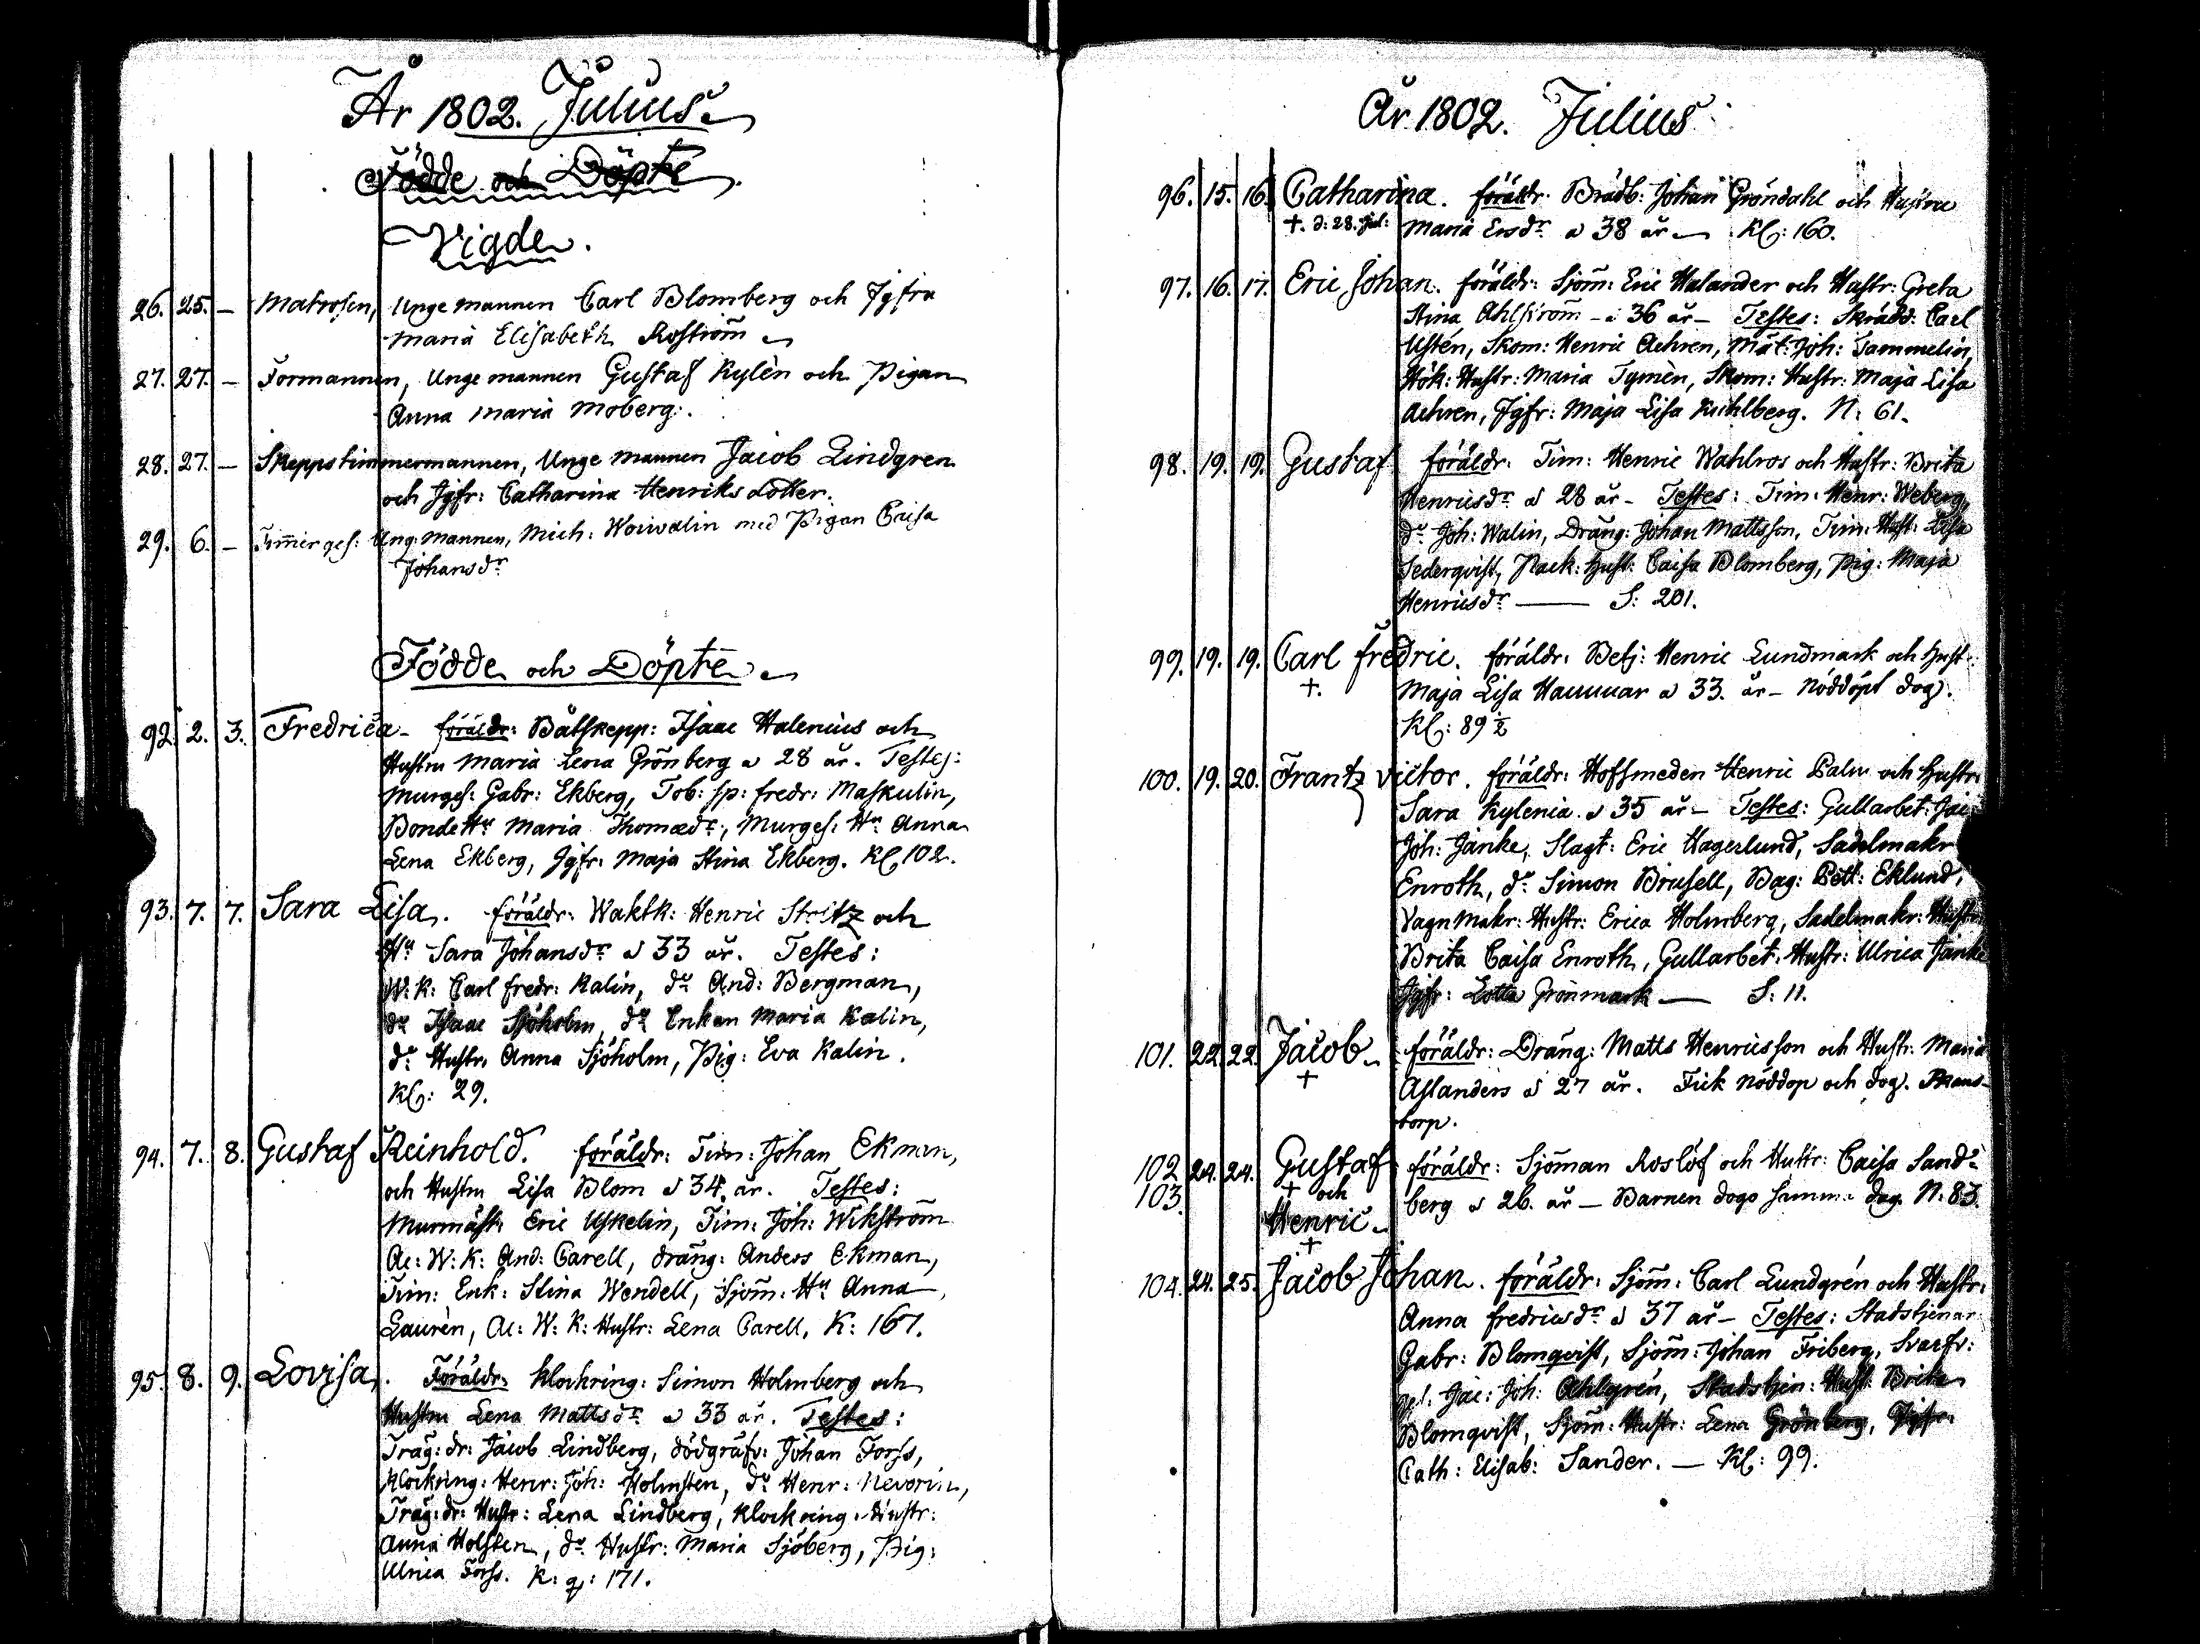 År 1802. Julius.
Födde och Döpte
Vigde.
26. 25. – Matrosen, Unge mannen Carl Blomberg och Jgfru
Maria Elisabeth Roström
27. 27. – Formannen, Unge mannen Gustaf Kylèn och Pigan
Anna Maria Moberg.
28. 27. – Skeppstimmermannen, Unge mannen Jacob Lindgren
och Jgfr: Catharina Henriks dotter.
29. 6. – Timerges: Ung: mannen, Mich: Woivalin med Pigan Caisa
Johansdr
Födde och Döpte
92. 2. 3. Fredrica – föräldr: Båtskepp: Isaac Halenius och
Hustru Maria Lena Grönberg a 28 år. Testes:
Murges: Gabr: Ekberg, Tob: sp: fredr: Maskulin,
Bonde Hu Maria Thomædr, Murges: Hu Anna
Lena Ekberg, Jgfr: Maja Stina Ekberg. Kl: 102.
93. 7. 7. Sara Lisa. föräldr: Waktk: Henric Stritz och
Hu Sara Johansdr a 33 år. Testes:
W: K: Carl fredr: Kalin, do And: Bergman,
do Isaac Sjöholm, do Enkan Maria Kalin,
do Hustr: Anna Sjöholm, Pig: Eva Kalin.
Kl: 29.
94. 7. 8. Gustaf Reinhold. föräldr: Tim: Johan Ekman,
och Hustru Lisa Blom a 34 år. Testes:
Murmäst: Eric Uskelin, Tim: Joh: Wikström
Ac: W: K: And: Carell, dräng: Anders Ekman,
Tim: Enk: Stina Wendell, Sjöm: Hu Anna
Laurèn, Ac: W: K: Hustr: Lena Carell, K: 167.
95. 8. 9. Lovisa. Föräldr: Klockring: Simon Holmberg och
Hustru Lena Mattsdr a 33 år. Testes:
Träg: dr: Jacob Lindberg, dödgräfv: Johan Forss,
Klockring: Henr: Joh: Holmsten, do Henr: Nevorin,
Träg: dr: Hustr: Lena Lindberg, Klockring: Hustr:
Anna Holsten, do Hustr: Maria Sjöberg, Pig:
Ulrica Forss. K: q: 171.
År 1802. Julius
96. 15. 16. Catharina. föräldr: Brädb: Johan Gröndahl och Hustru
+. d: 28. Jul: Maria Ersdr a 38 år – Kl: 160.
97. 16. 17. Eric Johan. föräldr: Sjöm: Eric Halander och Hustr: Greta
Stina Ahlström – a 36 år – Testes: Skrädd: Carl
Ustén, Skom: Henric Aehren, Mat: Joh: Tammelin,
Hök: Hustr: Maria Tymèn, Skom: Hustr: Maja Lisa
Aehren, Jgfr: Maja Lisa Kuhlberg. N: 61.
98. 19. 19. Gustaf föräldr: Tim: Henric Wahlros och Hustr: Brita
Henricsdr a 28 år – Testes: Tim: Henr: Weberg,
do Joh: Walin, Dräng: Johan Mattsson, Tim: Hust: Lisa
Sederqvist, Pack: Hust: Caisa Blomberg, Pig: Maja
Henricsdr — S: 201.
99. 19. 19. Carl fredric. föräldr: Betj: Henric Lundmark och Hust:
+. Maja Lisa a 33. år – Nöddöpt dog.
Kl: 89 ½
100. 19. 20. Frantz victor. föräldr: Hofsmeden Henric Palm och Hustr:
Sara Kylenia a 35 år – Testes: Gullarbet: Jac:
Joh: Janke, Slagt: Eric Hagerlund, Sadelmakr
Enroth, do Simon Brusell, Bag: Pett: Eklund,
Vagnmakr: Hustr: Erica Holmberg, Sadelmakr: Hustr:
Brita Caisa Enroth, Gullarbet: Hustr: Ulrica Janke
Jgfr: Lotta Grönmark — S: 11.
101. 22. 22. Jacob – föräldr: Dräng: Matts Henricsson och Hustr: Maria
+ Aslanders a 27 år. Fick nöddop och dog.
torp.
102. 24. 24. Gustaf föräldr: Sjöman Roslöf och Hustr: Caisa Sand=
103. + och berg a 26. år – Barnen dogo samma dag. N: 83.
Henric –
+
104. 24. 25. Jacob Johan. föräldr: Sjöm: Carl Lundgrén och Hustr:
Anna fredricsdr a 37 år – Testes: Stadstjenar
Gabr: Blomqvist, Sjöm: Johan Friberg, Svarfv:
ges. Jac: Joh: Ahlgrén, Stadstjen: Hust: Brita
Blomqvist, Sjöm: Hustr: Lena Grönberg, Jgfr:
Cath: Elisab: Sander. — Kl: 99.